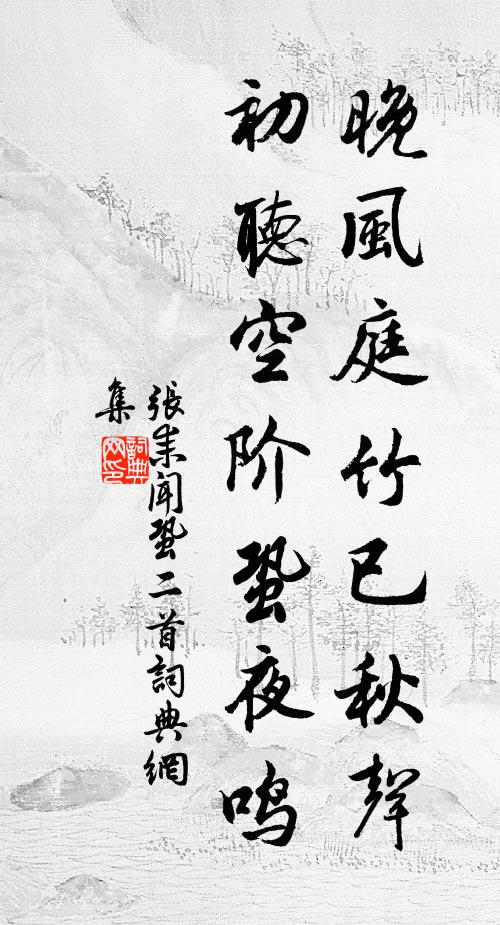 晚風庭竹已秋聲
初聽空阶蛩夜鸣
張耒聞蛩二首詞典網
集
詞典网印